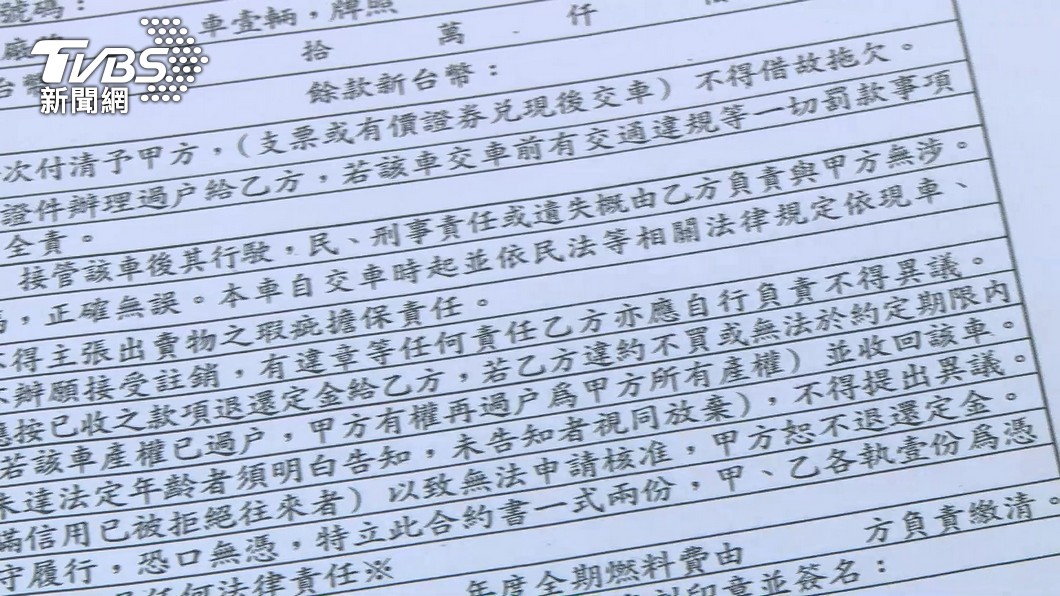 號碼：
車壹輛，牌照
拾　萬　仟
台幣
餘款新台幣：
次付清予甲方，（支票或有價證券兌現後交車）不得借故拖欠。
證件辦理過户給乙方，若該車交車前有交通違規等一切罰款事項
全責。
接管該車後其行駛，民、刑事責任或遺失概由乙方負責與甲方無涉。
，正確無誤。本車自交車時起並依民法等相關法律規定依現車、
不得主張出賣物之瑕疵擔保責任。
不辦願接受註銷，有違章等任何責任乙方亦應自行負責不得異議。
應按已收之款項退還定金給乙方，若乙方違約不買或無法於約定期限內
若該車產權已過户，甲方有權再過户為甲方所有產權）並收回該車。
未達法定年齡者須明白告知，未告知者視同放棄），不得提出異議。
滿信用已被拒絕往來者）以致無法申請核准，甲方恕不退還定金。
守履行，恐口無憑，特立此合約書一式兩份，甲、乙各執壹份為憑
任何法律責任※
年度全期燃料費由　方負責繳清。
印章並簽名：
TVBS
新聞網